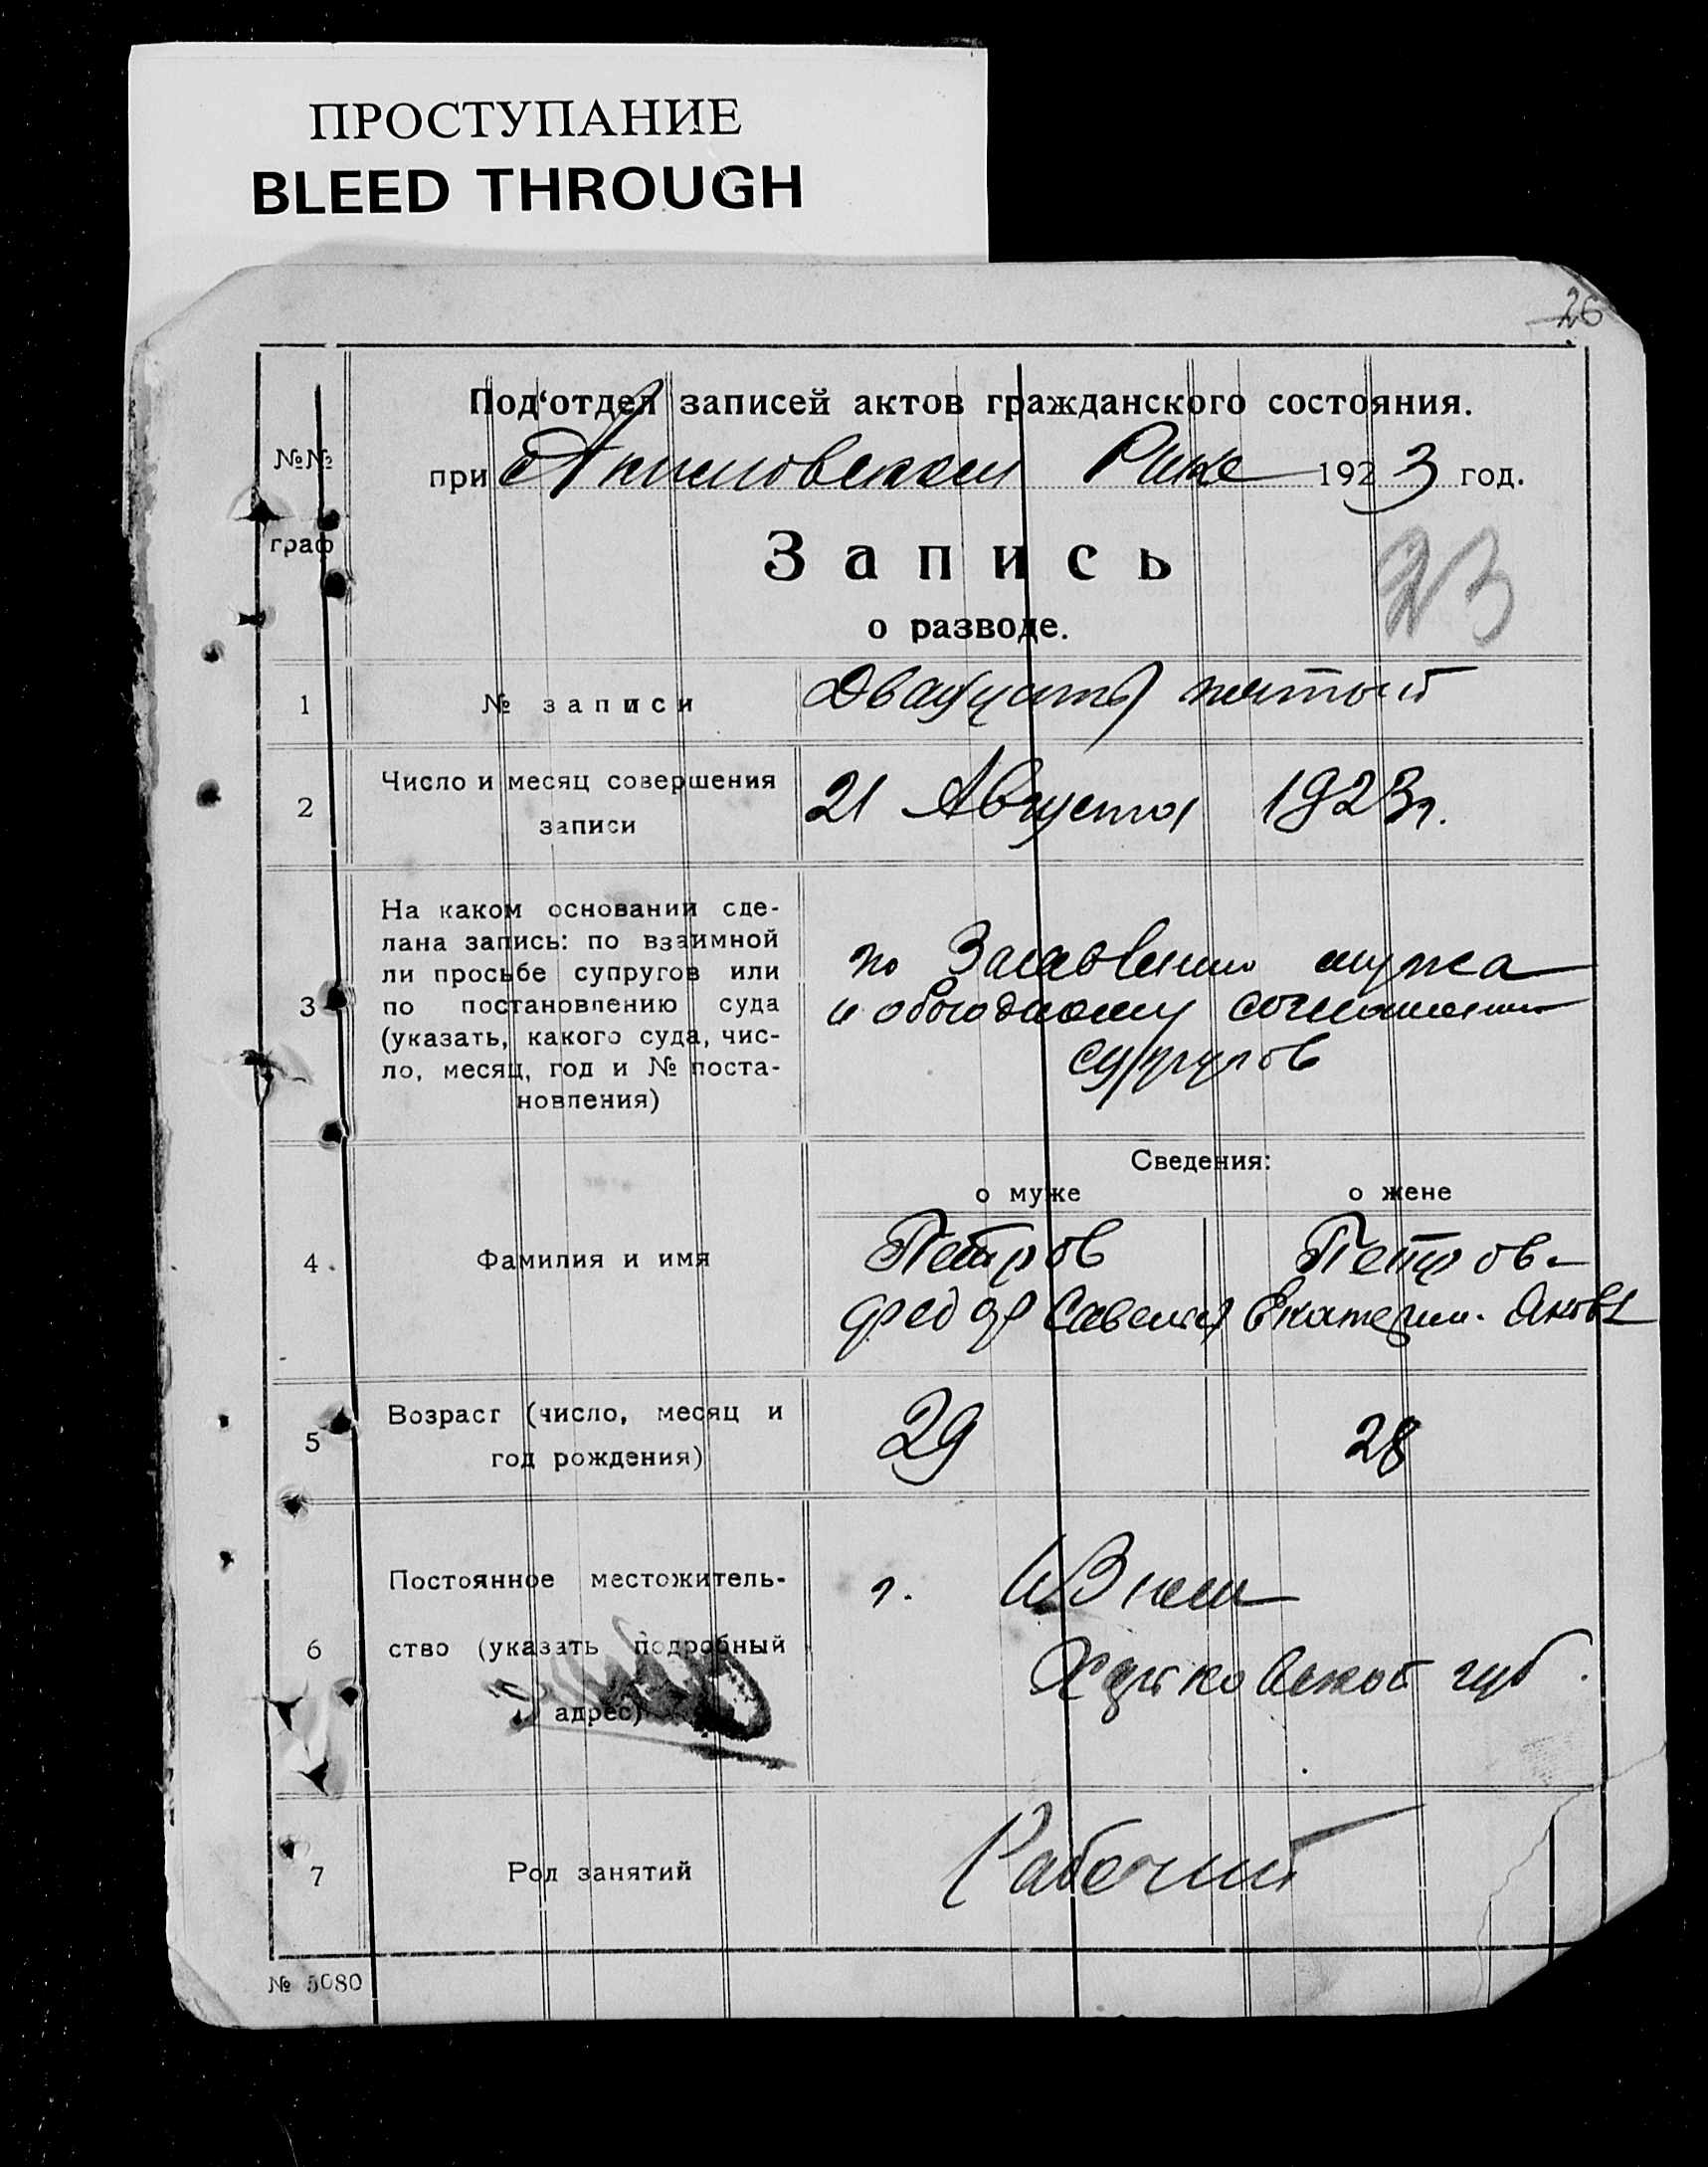 ПРОСТУПАНИЕ
BLEED THROUGH
26
Под‘отдел записей актов гражданского состояния.
№№ граф
при Акимовском Рике 1923 год.
Запись
о разводе.
23
1 № записи Двадцать пятый
2 Число и месяц совершения
записи
21 Августа 1923г.
3 На каком основании сде-
лана запись: по взаимной
ли просьбе супругов или
по постановлению суда
(указать, какого суда, чис-
ло, месяц, год и № поста-
новления)
по Заявлению мужа
и обоюдному соглашению
супругов
Сведения:
о муже о жене
4 Фамилия и имя
Петров Петров-
Федор Савельев Екатерин. Яковл
5 Возраст (число, месяц и
год рождения)
29 28
6 Постоянное местожитель-
ство (указать подробный
адрес)
г. Изюм
Харьковской губ.
7 Род занятий Рабочий
№ 5080